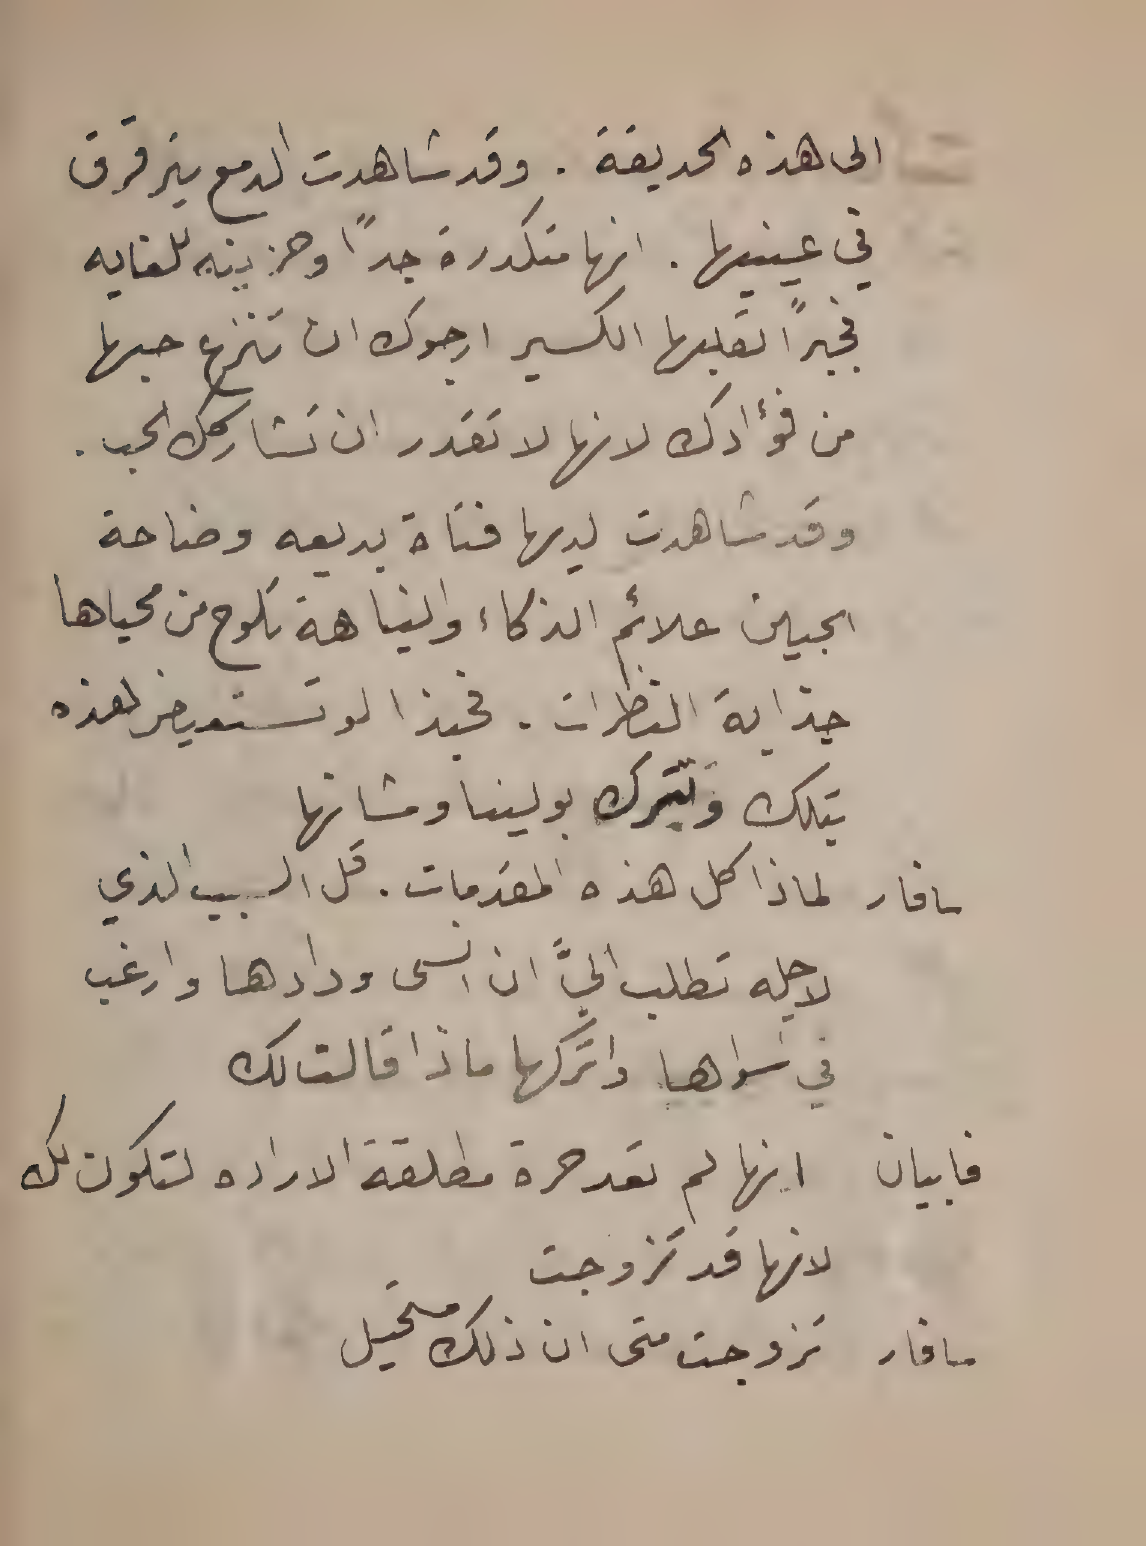 الى هذه الحديقة . وقد شاهدت الدمع يترقرق
في عينيها . انها متكدرة جدًا وحزينه للغايه
فجبرًا لقلبها الكسير ارجوك ان تنزع حبها
من فؤادك لانها لا تقدر ان تشاركك الحب .
وقد شاهدت لديها فتاة بديعه وضاحة
الجبين علائم الذكاء والنباهة تلوح من محياها
جذابة النظرات . فحبذا لو تستعيض لهذه
بتلك وتترك بولينا ومشانها
سافار لماذا كل هذه المقدمات . قل السبب الذي
لاجله تطلب اليَّ ان انسى ودادها وارغب
في سواها واتركها ماذا قالت لك
فابيان انها لم تعد حرة مطلقة الاراده لتكون لك
لانها قد تزوجت
سافار تزوجت متى ان ذلك مستحيل